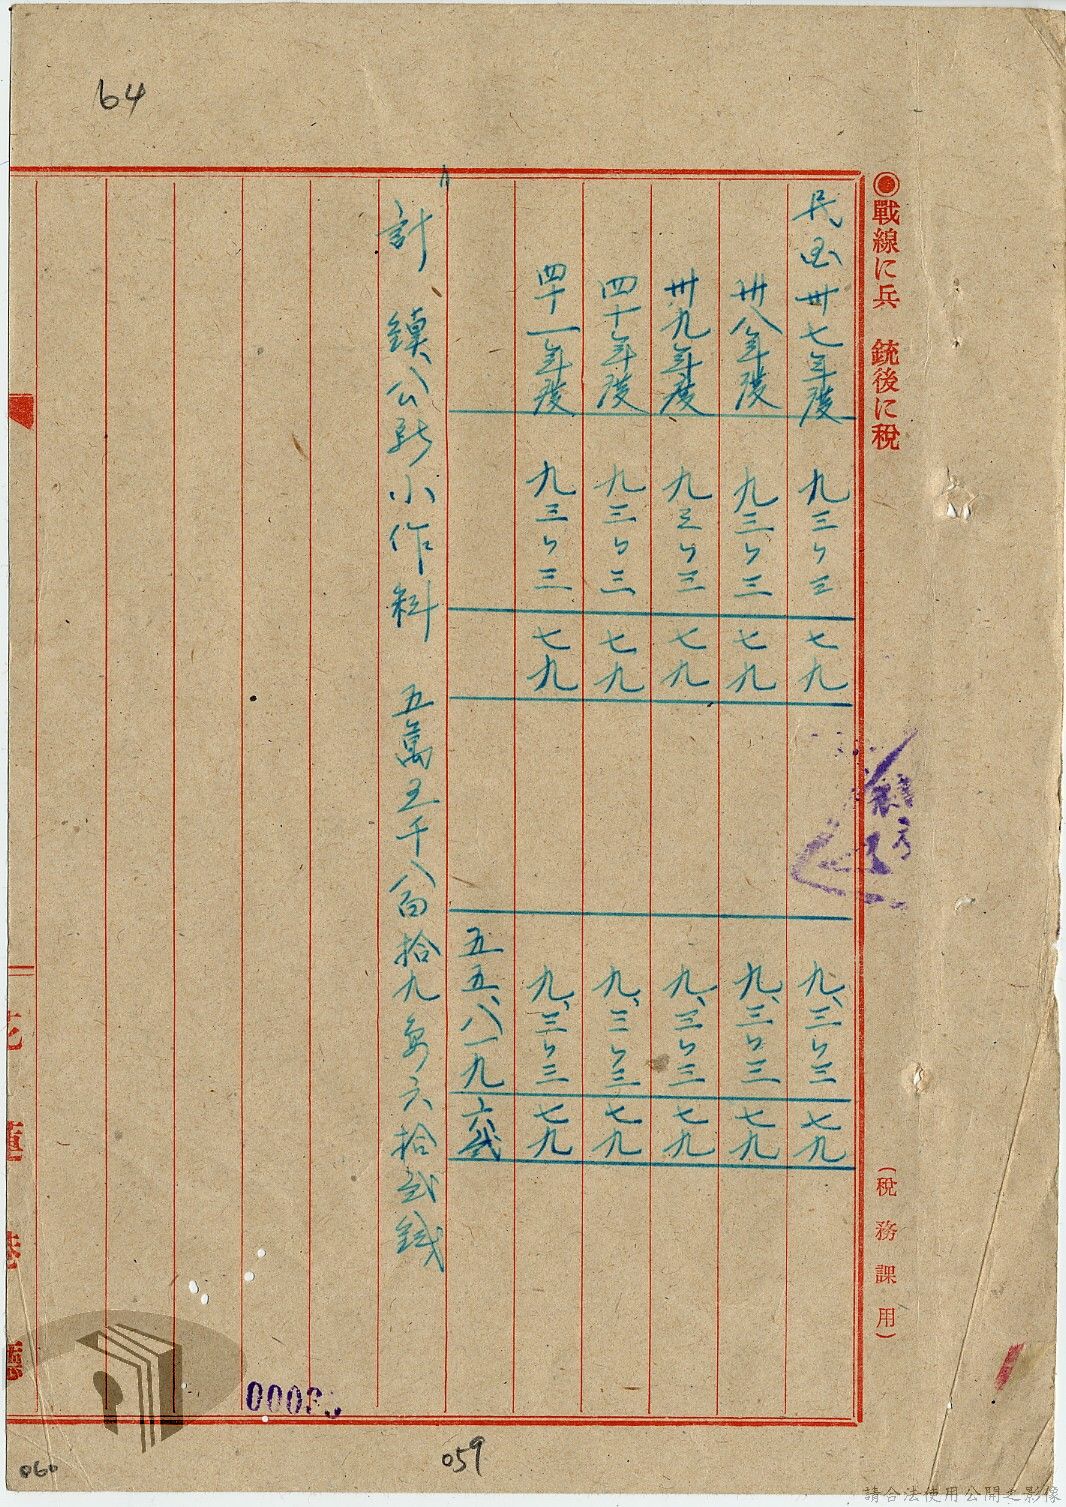 64
◉戰線に兵　銃後に稅
(稅務課用)
民国卅七年度　九三〇三　七九　九、三〇三　七九
卅八年度　九三〇三　七九　九、三〇三　七九
卅九年度　九三〇三　七九　九、三〇三　七九
四十年度　九三〇三　七九　九、三〇三　七九
四十一年度　九三〇三　七九　九、三〇三　七九
五五、八一九　六弐
計　鎮公所小作料　五萬五千八百拾九円六拾弐錢
花蓮港廳
059
060
請合法使用公開之影像